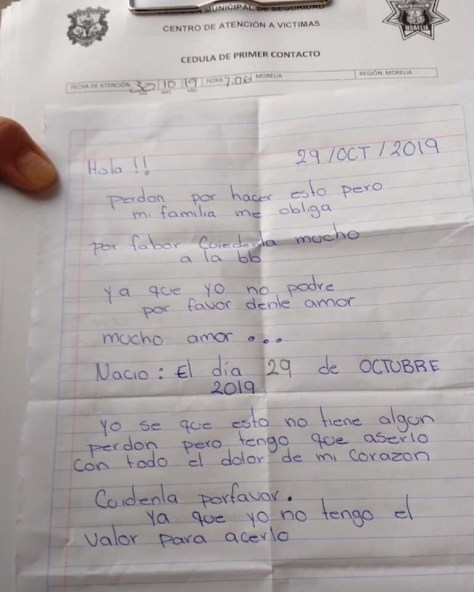 MUNICIPAL DE SEGURIDAD
CENTRO DE ATENCIÓN A VICTIMAS
CEDULA DE PRIMER CONTACTO
FECHA DE ATENCIÓN: 30 10 19 HORA MORELIA REGIÓN: MORELIA
MORELIA
Hola !! 29/OCT/2019
perdon por hacer esto pero
mi familia me obliga
por fabor Cuiedenla mucho
a la bb
ya que yo no podre
por favor denle amor
mucho amor ...
Nacio: El dia 29 de OCTUBRE
2019
yo se que esto no tiene algun
perdon pero tengo que aserlo
con todo el dolor de mi corazon
Cuidenla porfavor.
Ya que yo no tengo el
valor para acerlo